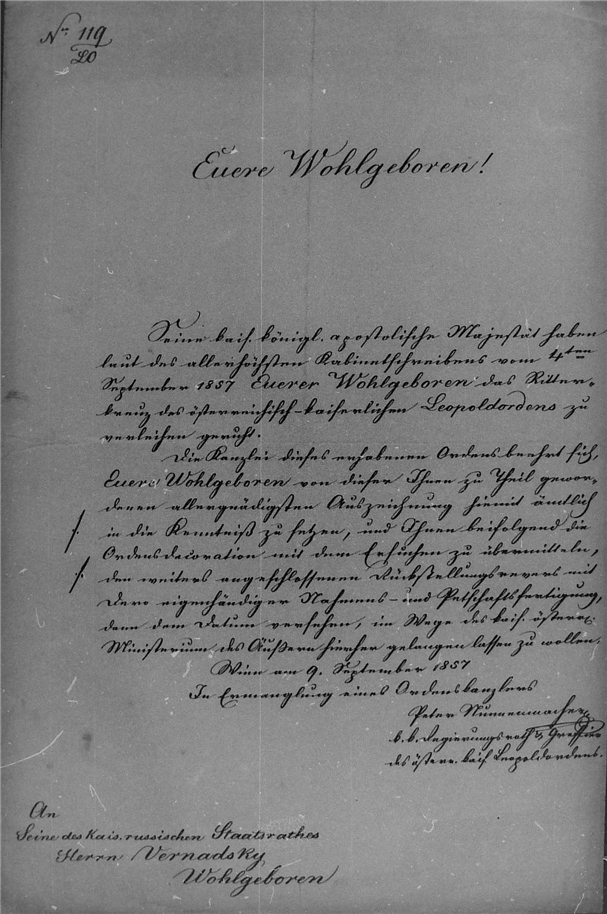 Nr. 119
LO
Euere Wohlgeboren!
Seine kais. königl. apostolische Majestät haben
laut des allerhöchsten Kabinetschreibens vom 4ten
September 1857 Euerer Wohlgeboren das Ritter-
kreuz des österreichisch-kaiserlichen Leopoldordens zu
verleihen geruht.
Die Kanzlei dieses erhabenen Ordens beehrt sich,
Euere Wohlgeboren von dieser Ihnen zu Theil gewor-
denen allergnädigsten Auszeichnung hiemit ämtlich
in die Kenntniß zu setzen, und Ihnen beifolgend die
Ordensdecoration mit dem Ersuchen zu übermitteln,
den weiters angeschlossenen Rückstellungsrevers mit
Dero eigenhändiger Nahmens- und Petschaftsfertigung,
dann dem Datum versehen, im Wege des kais. österr.
Ministerium des Äußern hierher gelangen lassen zu wollen.
Wien am 9. September 1857
In Ermanglung eines Ordenskanzlers
Peter Nunnenmacher
k. k. Regierungsrath & Greffier
des österr. kais. Leopoldordens.
An
Seine des Kais. russischen Staatsrathes
Herrn Vernadsky
Wohlgeboren